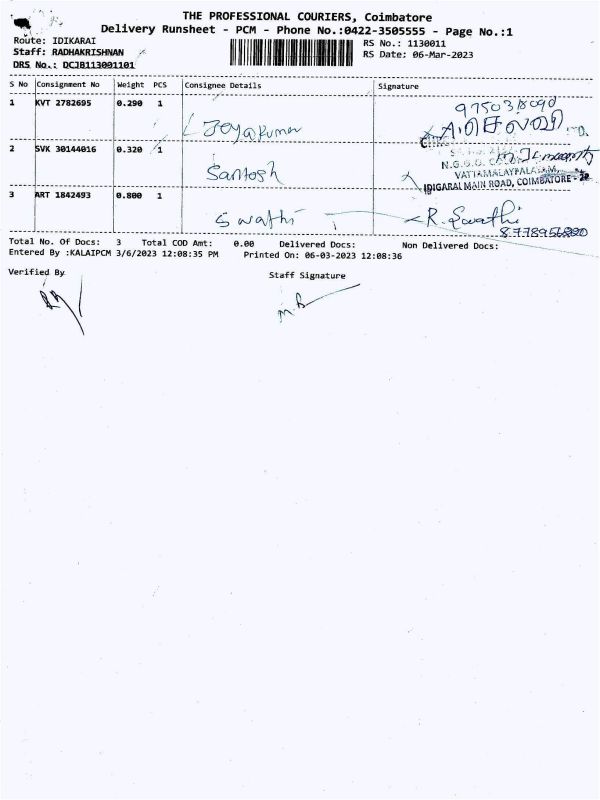 THE PROFESSIONAL COURIERS, Coimbatore
Delivery Runsheet - PCM - Phone No.:0422-3505555 - Page No.:1
Route: IDIKARAI
RS No.: 1130011
Staff: RADHAKRISHNAN
RS Date: 06-Mar-2023
DRS No.: DCJB113001101
S No Consignment No Weight PCS Consignee Details Signature
1 KVT 2782695 0.290 1 Jeyakumar
2 SVK 30144016 0.320 1 Santosh
N.G.G.O. COLONY
VATTAMALAYPALAYAM
IDIGARAI MAIN ROAD, COIMBATORE
3 ART 1842493 0.800 1 Swathi R. Swathi
Total No. Of Docs: 3 Total COD Amt: 0.00 Delivered Docs: Non Delivered Docs:
Entered By :KALAIPCM 3/6/2023 12:08:35 PM Printed On: 06-03-2023 12:08:36
Verified By Staff Signature